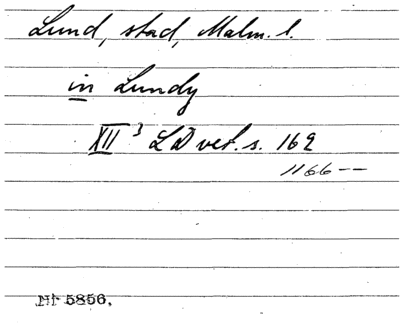 Lund, stad, Malm. l.
in Lundy
XII 3 LD vet. s. 162
1166--
Nr 5856.